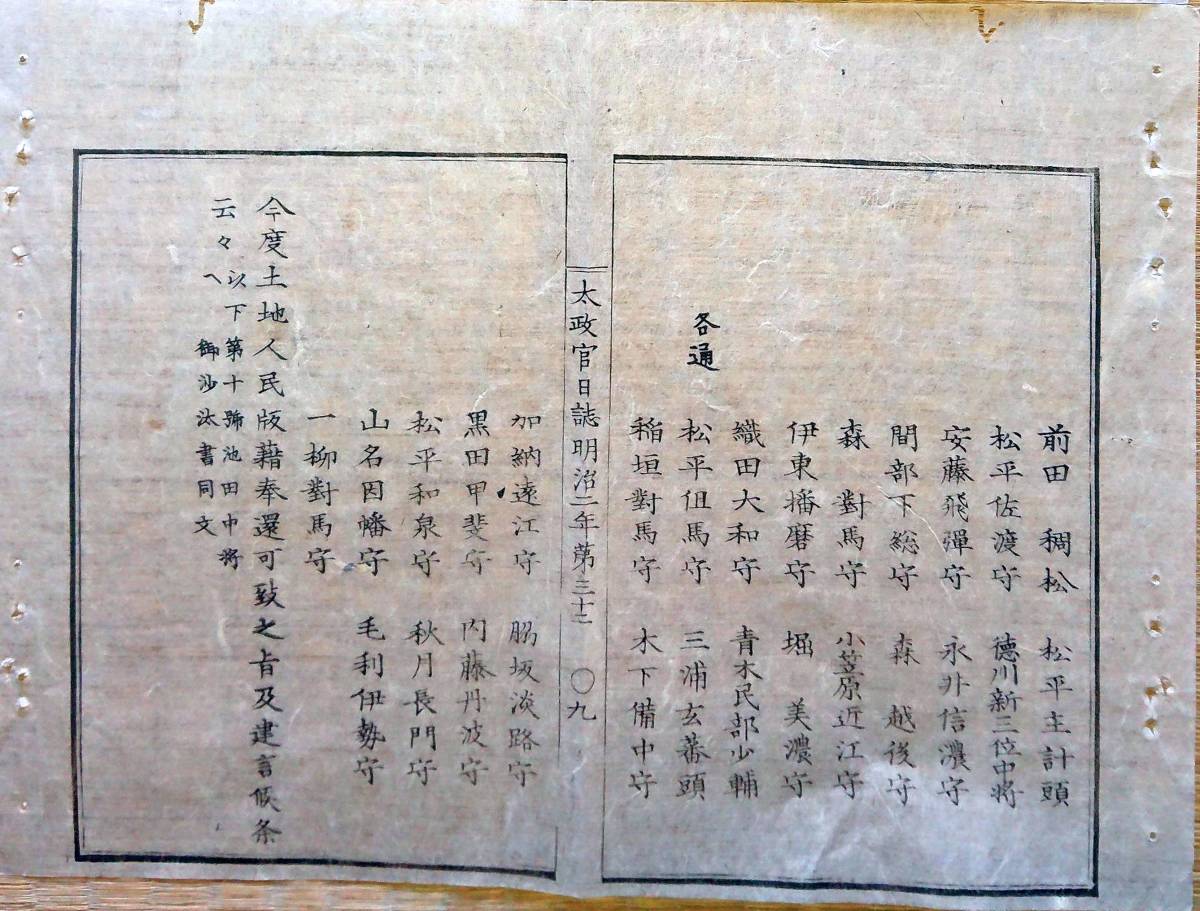 前田 稠松 松平主計頭
松平佐渡守 徳川新三位中将
安藤飛彈守 永井信濃守
間部下総守 森 越後守
森 對馬守 小笠原近江守
伊東播磨守 堀 美濃守
各通
織田大和守 青木民部少輔
松平但馬守 三浦玄蕃頭
稲垣對馬守 木下備中守
太政官日誌明治二年第三十二 〇九
加納遠江守 脇坂淡路守
黒田甲斐守 内藤丹波守
松平和泉守 秋月長門守
山名因幡守 毛利伊勢守
一柳對馬守
今度土地人民版籍奉還可致之旨及建言候条
云々 以下第十號池田中将
へ 御沙汰書同文